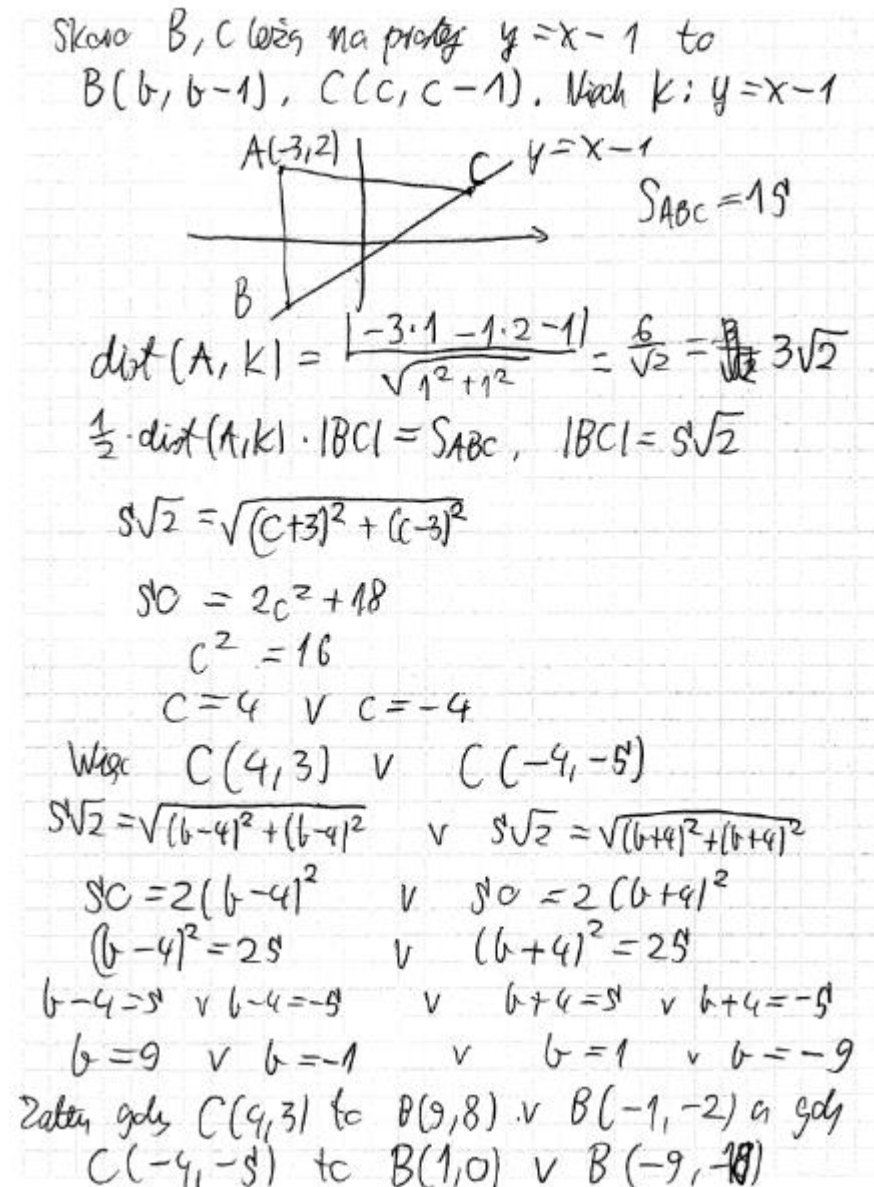 Skoro B, C leżą na prostej y = x - 1 to
B(b, b-1), C(c, c-1). Niech k: y = x-1
A(-3,2)
C
y = x-1
S_ABC = 15
B
dist(A, k) = |-3·1 - 1·2 - 1| / √(1² + 1²) = 6/√2 = 3√2
1/2 · dist(A, k) · |BC| = S_ABC, |BC| = 5√2
5√2 = √((c+3)² + (c-3)²)
50 = 2c² + 18
c² = 16
c = 4 ∨ c = -4
Więc C(4, 3) ∨ C(-4, -5)
5√2 = √((b-4)² + (b-4)²) ∨ 5√2 = √((b+4)² + (b+4)²)
50 = 2(b-4)² ∨ 50 = 2(b+4)²
(b-4)² = 25 ∨ (b+4)² = 25
b-4 = 5 ∨ b-4 = -5 ∨ b+4 = 5 ∨ b+4 = -5
b = 9 ∨ b = -1 ∨ b = 1 ∨ b = -9
Zatem gdy C(4,3) to B(9,8) ∨ B(-1,-2) a gdy
C(-4,-5) to B(1,0) ∨ B(-9,-10)